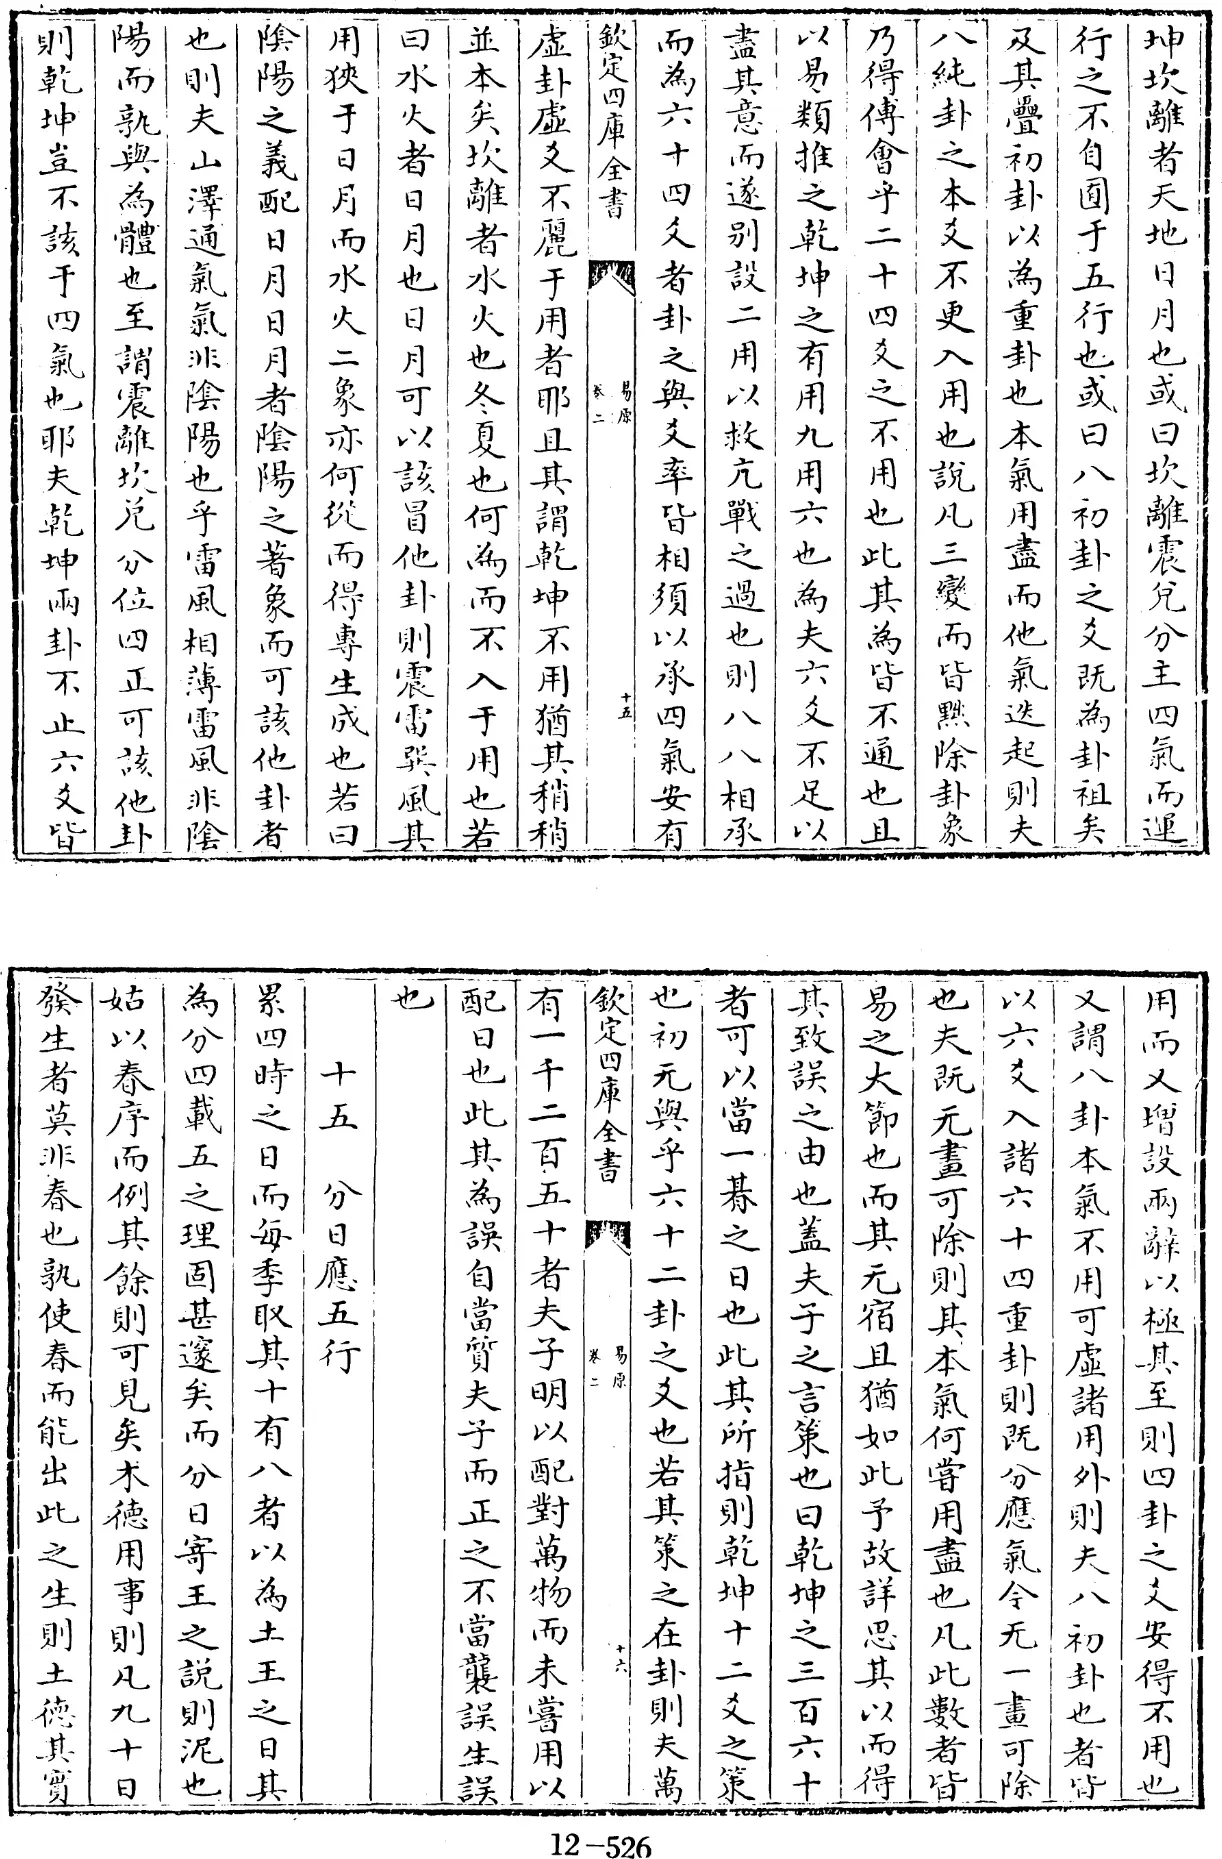 坤坎離者天地日月也或曰坎離震兌分主四氣而運
行之不自囿于五行也或曰八初卦之爻既為卦祖矣
及其疊初卦以為重卦也本氣用盡而他氣迭起則夫
八純卦之本爻不更入用也說凡三變而皆黙除卦象
乃得傅會乎二十四爻之不用也此其為皆不通也且
以易類推之乾坤之有用九用六也為夫六爻不足以
盡其意而遂别設二用以救亢戰之過也則八八相承
而為六十四爻者卦之與爻率皆相須以承四氣安有
欽定四庫全書
易原
卷二
十五
虛卦虛爻不麗于用者耶且其謂乾坤不用猶其稍稍
並本矣坎離者水火也冬夏也何為而不入于用也若
曰水火者日月也日月可以該冒他卦則震雷巽風其
用狹于日月而水火二象亦何從而得專生成也若曰
陰陽之義配日月日月者陰陽之著象而可該他卦者
也則夫山澤通氣氣非陰陽也乎雷風相薄雷風非陰
陽而孰與為體也至謂震離坎兌分位四正可該他卦
則乾坤豈不該于四氣也耶夫乾坤兩卦不止六爻皆
用而又增設兩辭以極其至則四卦之爻安得不用也
又謂八卦本氣不用可虛諸用外則夫八初卦也者皆
以六爻入諸六十四重卦則既分應氣令无一畫可除
也夫既无畫可除則其本氣何嘗用盡也凡此數者皆
易之大節也而其无宿且猶如此予故詳思其以而得
其致誤之由也蓋夫子之言策也曰乾坤之三百六十
者可以當一朞之日也此其所指則乾坤十二爻之策
也初无與乎六十二卦之爻也若其策之在卦則夫萬
欽定四庫全書
易原
卷二
十六
有一千二百五十者夫子明以配對萬物而未嘗用以
配日也此其為誤自當質夫子而正之不當襲誤生誤
也
十五 分日應五行
累四時之日而每季取其十有八者以為土王之日其
為分四載五之理固甚邃矣而分日寄王之說則泥也
姑以春序而例其餘則可見矣木德用事則凡九十日
發生者莫非春也孰使春而能出此之生則土德其實
12-526